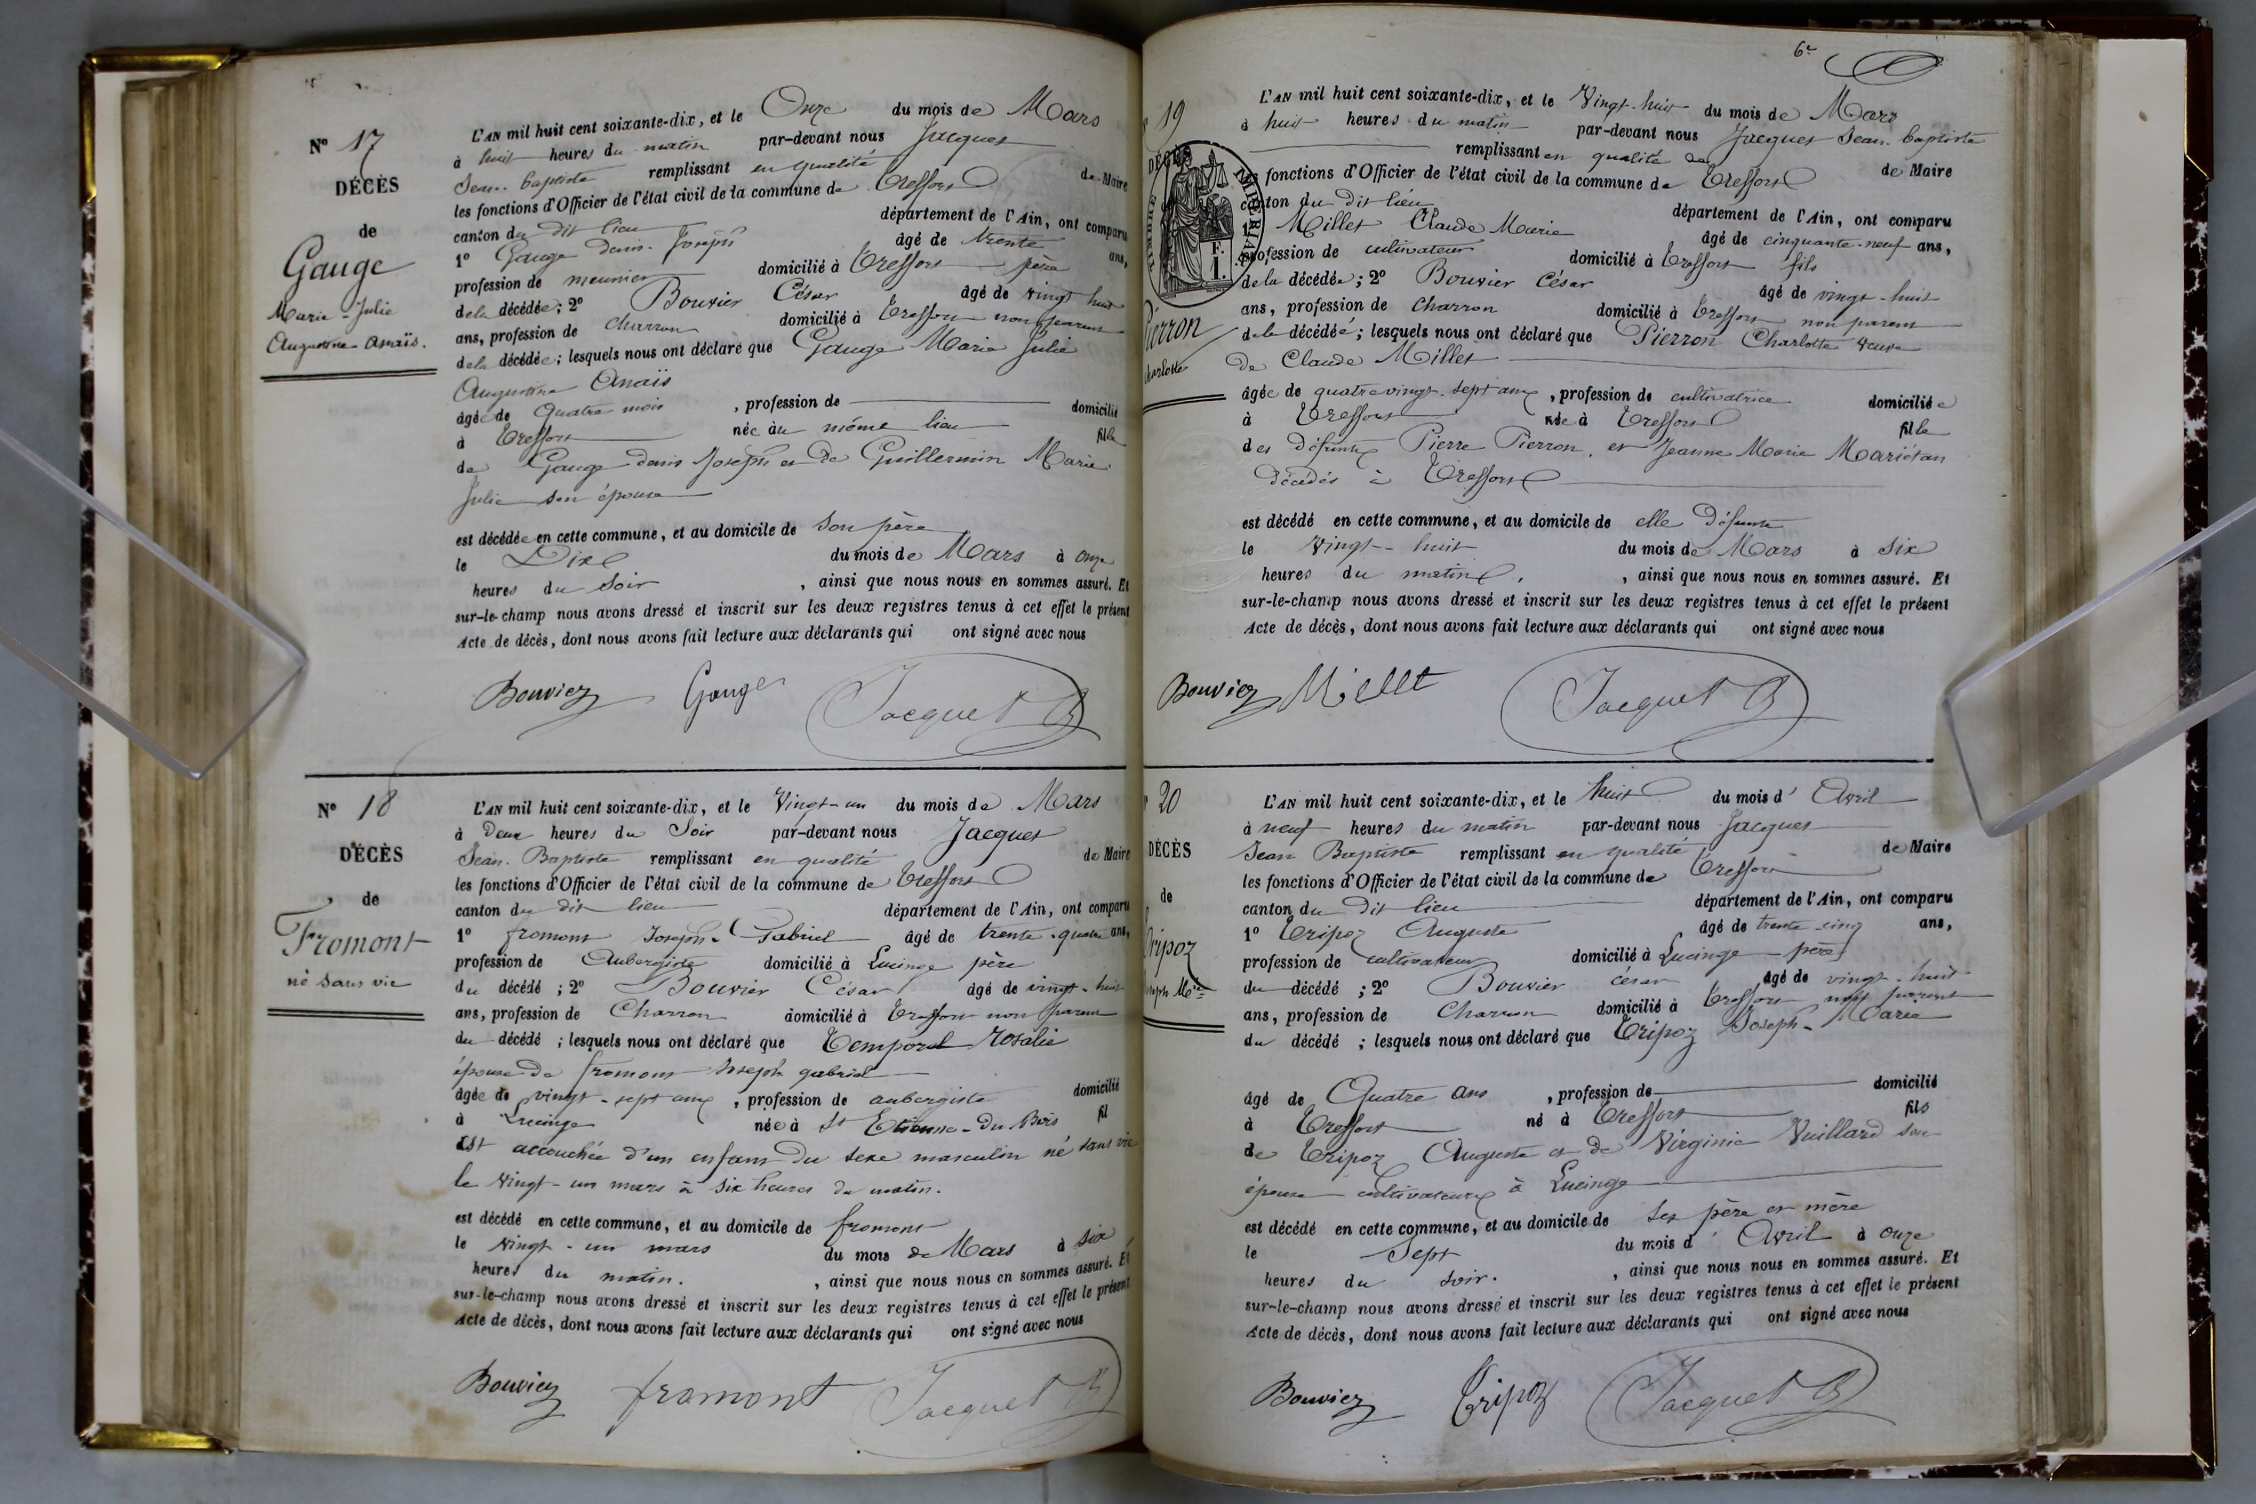 N° 17
DÉCÈS
de
Gauge
Marie-Julie
Augustine Anaïs.
L'AN mil huit cent soixante-dix, et le Onze du mois de Mars
à huit heures du matin par-devant nous Jacquet
Jean-baptiste remplissant en qualité de Maire
les fonctions d'Officier de l'état civil de la commune de Treffort
canton du dit lieu département de l'Ain, ont comparu
1° Gauge denis-Joseph âgé de trente ans,
profession de meunier domicilié à Treffort père
de la décédée; 2° Bouvier César âgé de vingt huit
ans, profession de charron domicilié à Treffort non parent
de la décédée; lesquels nous ont déclaré que Gauge Marie Julie
Augustine Anaïs
âgée de quatre mois, profession de domicilié
à Treffort née au même lieu fille
de Gauge denis Joseph et de Guillermin Marie
Julie son épouse
est décédée en cette commune, et au domicile de son père
le Dix du mois de Mars à onze
heures du soir, ainsi que nous nous en sommes assuré. Et
sur-le-champ nous avons dressé et inscrit sur les deux registres tenus à cet effet le présent
Acte de décès, dont nous avons fait lecture aux déclarants qui ont signé avec nous
Bouvier Gauge Jacquet B
N° 18
DÉCÈS
de
Fromont
né sans vie
L'AN mil huit cent soixante-dix, et le Vingt-un du mois de Mars
à Deux heures du Soir par-devant nous Jacquet
Jean-Baptiste remplissant en qualité de Maire
les fonctions d'Officier de l'état civil de la commune de Treffort
canton du dit lieu département de l'Ain, ont comparu
1° fromont Joseph-Gabriel âgé de trente-quatre ans,
profession de Aubergiste domicilié à Lucinge père
du décédé; 2° Bouvier César âgé de vingt-huit
ans, profession de Charron domicilié à Treffort non parent
du décédé; lesquels nous ont déclaré que Temporal Rosalie
épouse de fromont Joseph gabriel
âgée de vingt-sept ans, profession de aubergiste domicilié
à Lucinge née à St Etienne-du-Bois fil
est accouchée d'un enfant du sexe masculin né sans vie
le vingt-un mars à six heures du matin.
est décédé en cette commune, et au domicile de fromont
le vingt-un mars du mois de Mars à six
heures du matin., ainsi que nous nous en sommes assuré. Et
sur-le-champ nous avons dressé et inscrit sur les deux registres tenus à cet effet le présent
Acte de décès, dont nous avons fait lecture aux déclarants qui ont signé avec nous
Bouvier fromont Jacquet B
6e
19
DÉCÈS
TIMBRE IMPÉRIAL
F.
1.
Pierron
Charlotte
L'AN mil huit cent soixante-dix, et le Vingt-huit du mois de Mars
à huit heures du matin par-devant nous Jacquet Jean-baptiste
remplissant en qualité de Maire
fonctions d'Officier de l'état civil de la commune de Treffort
canton du dit lieu département de l'Ain, ont comparu
1° Millet Claude Marie âgé de cinquante-neuf ans,
profession de cultivateur domicilié à Treffort fils
de la décédée; 2° Bouvier César âgé de vingt-huit
ans, profession de charron domicilié à Treffort non parent
de la décédée; lesquels nous ont déclaré que Pierron Charlotte veuve
de Claude Millet
âgée de quatrevingt-sept ans, profession de cultivatrice domiciliée
à Treffort née à Treffort fille
des défunts Pierre Pierron et Jeanne Marie Mariétan
décédés à Treffort
est décédé en cette commune, et au domicile de elle défunte
le vingt-huit du mois de Mars à six
heures du matin., ainsi que nous nous en sommes assuré. Et
sur-le-champ nous avons dressé et inscrit sur les deux registres tenus à cet effet le présent
Acte de décès, dont nous avons fait lecture aux déclarants qui ont signé avec nous
Bouvier Millet Jacquet B
20
DÉCÈS
de
Tripoz
Joseph Mie
L'AN mil huit cent soixante-dix, et le huit du mois d'Avril
à neuf heures du matin par-devant nous Jacquet
Jean Baptiste remplissant en qualité de Maire
les fonctions d'Officier de l'état civil de la commune de Treffort
canton du dit lieu département de l'Ain, ont comparu
1° Tripoz Auguste âgé de trente cinq ans,
profession de cultivateur domicilié à Lucinge père
du décédé; 2° Bouvier césar âgé de vingt-huit
ans, profession de Charron domicilié à Treffort non parent
du décédé; lesquels nous ont déclaré que Tripoz Joseph-Marie
âgé de Quatre ans, profession de domicilié
à Treffort né à Treffort fils
de Tripoz Auguste et de Virginie Vuillard son
épouse cultivateurs à Lucinge
est décédé en cette commune, et au domicile de ses père et mère
le Sept du mois d'Avril à onze
heures du soir., ainsi que nous nous en sommes assuré. Et
sur-le-champ nous avons dressé et inscrit sur les deux registres tenus à cet effet le présent
Acte de décès, dont nous avons fait lecture aux déclarants qui ont signé avec nous
Bouvier Tripoz Jacquet B